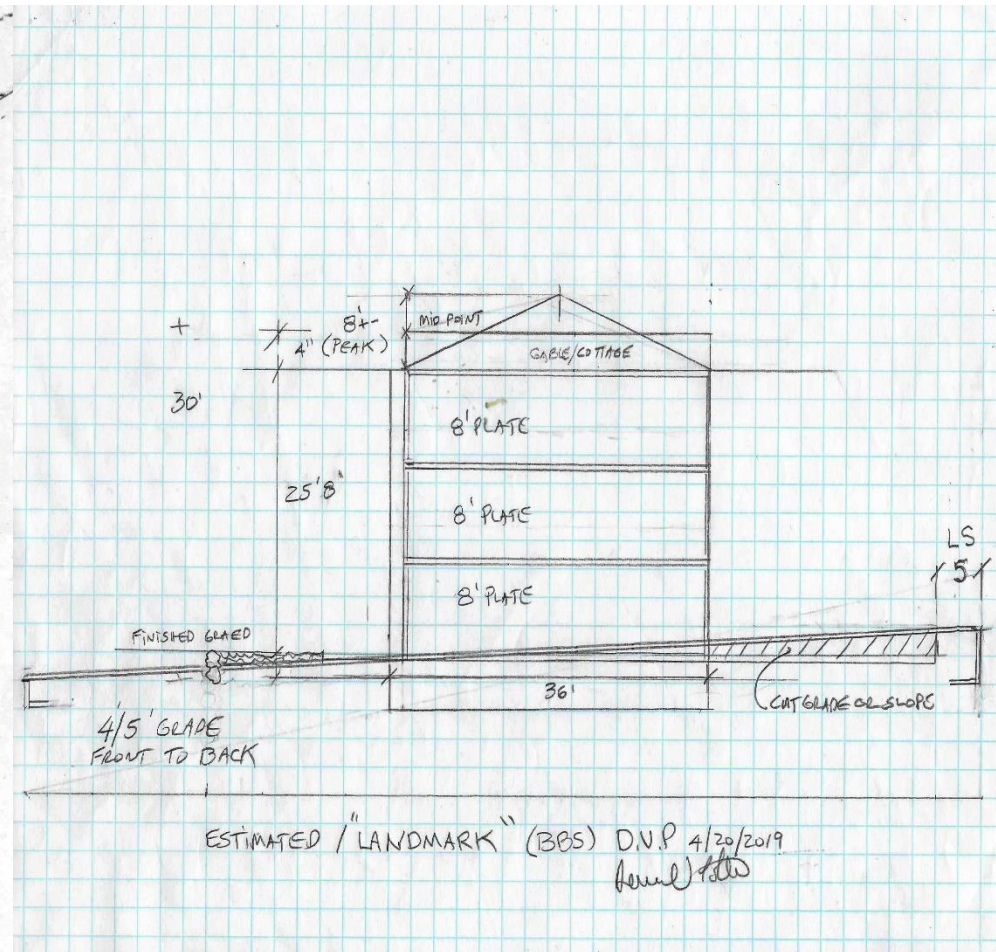 8'+-
4" (PEAK)
MID POINT
GABLE/COTTAGE
+
30'
8' PLATE
25'8"
8' PLATE
8' PLATE
LS
5
FINISHED GRAED
36'
CUT GRADE OR SLOPE
4/5' GRADE
FRONT TO BACK
ESTIMATED / "LANDMARK" (BBS) D.V.P 4/20/2019